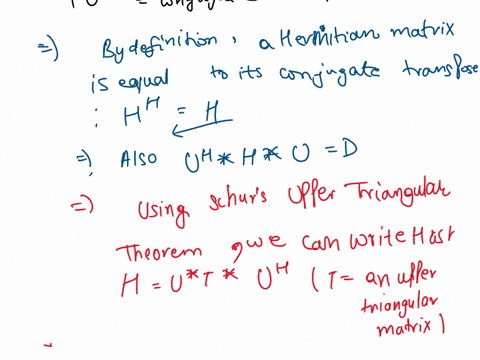 =) By definition, a Hermitian matrix
is equal to its conjugate transpose
: H^H = H
=) Also U^H * H * U = D
=) Using Schur's Upper Triangular
Theorem, we can write H as:
H = U * T * U^H (T = an upper
triangular
matrix)